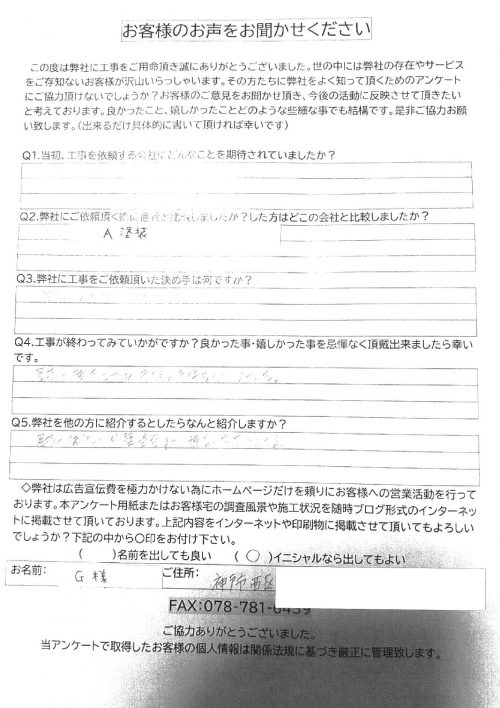 お客様のお声をお聞かせください
この度は弊社に工事をご用命頂き誠にありがとうございました。世の中には弊社の存在やサービス
をご存知ないお客様が沢山いらっしゃいます。その方たちに弊社をよく知って頂くためのアンケート
にご協力頂けないでしょうか？お客様のご意見をお聞かせ頂き、今後の活動に反映させて頂きたい
と考えております。良かったこと、嬉しかったことどのような些細な事でも結構です。是非ご協力お願
い致します。(出来るだけ具体的に書いて頂ければ幸いです)
Q1.当初、工事を依頼する会社にどんなことを期待されていましたか？
Q2.弊社にご依頼頂く際に他社と比較しましたか？した方はどこの会社と比較しましたか？
A 塗装
Q3.弊社に工事をご依頼頂いた決め手は何ですか？
Q4.工事が終わってみていかがですか？良かった事・嬉しかった事を忌憚なく頂戴出来ましたら幸い
です。
Q5.弊社を他の方に紹介するとしたらなんと紹介しますか？
◇弊社は広告宣伝費を極力かけない為にホームページだけを頼りにお客様への営業活動を行って
おります。本アンケート用紙またはお客様宅の調査風景や施工状況を随時ブログ形式のインターネッ
トに掲載させて頂いております。上記内容をインターネットや印刷物に掲載させて頂いてもよろしい
でしょうか？下記の中から○印をお付け下さい。
(　　)名前を出しても良い　(○)イニシャルなら出してもよい
お名前: G 様 ご住所: 神戸市西区
FAX:078-781-6439
ご協力ありがとうございました。
当アンケートで取得したお客様の個人情報は関係法規に基づき厳正に管理致します。